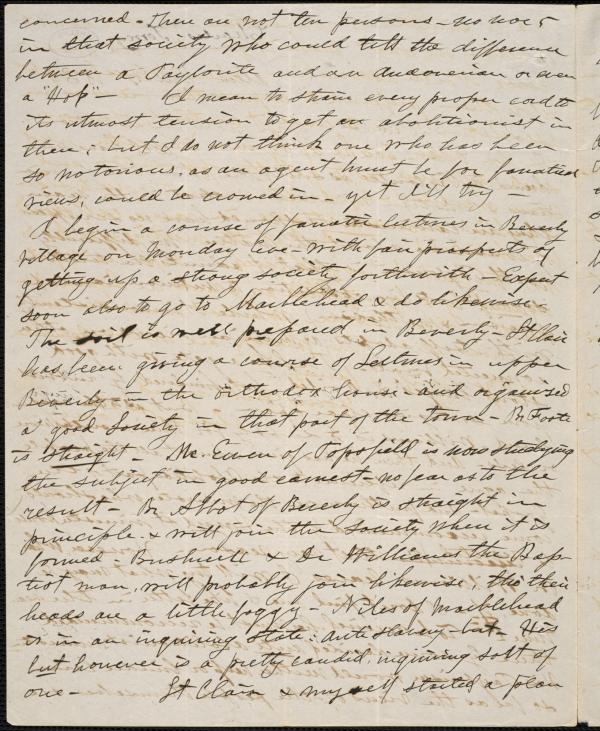 concerned - There are not ten persons - no nor 5
in that society who could tell the difference
between a Taylorite and an Andoverian or even
a "Hop" - I mean to strain every proper cord to
its utmost tension to get an abolitionist in
there; but I do not think one who has been
so notorious, as an agent must be for fanatical
views, could be crowed in - yet I'll try -
I begin a course of fanatic lectures in Beverly
village on Monday Eve - with fair prospects of
getting up a strong society forthwith - Expect
soon also to go to Marblehead & do likewise.
The soil is well prepared in Beverly - St Clair
has been giving a course of Lectures in upper
Beverly - in the orthodox house - and organised
a good Society in that part of the town - Br Foote
is straight - Mc. Ewen of Topsfield is now studying
the subject in good earnest - no fear as to the
result - Br Abbot of Beverly is straight in
principle & will join the Society when it is
formed - Bushnell & Dr Williams the Bap-
tist man, will probably join likewise, tho their
heads are a little foggy - Niles of Marblehead
is in an inquiring state: anti slavery - but - His
but however is a pretty candid, inquiring sort of
one - St Clair & myself started a plan